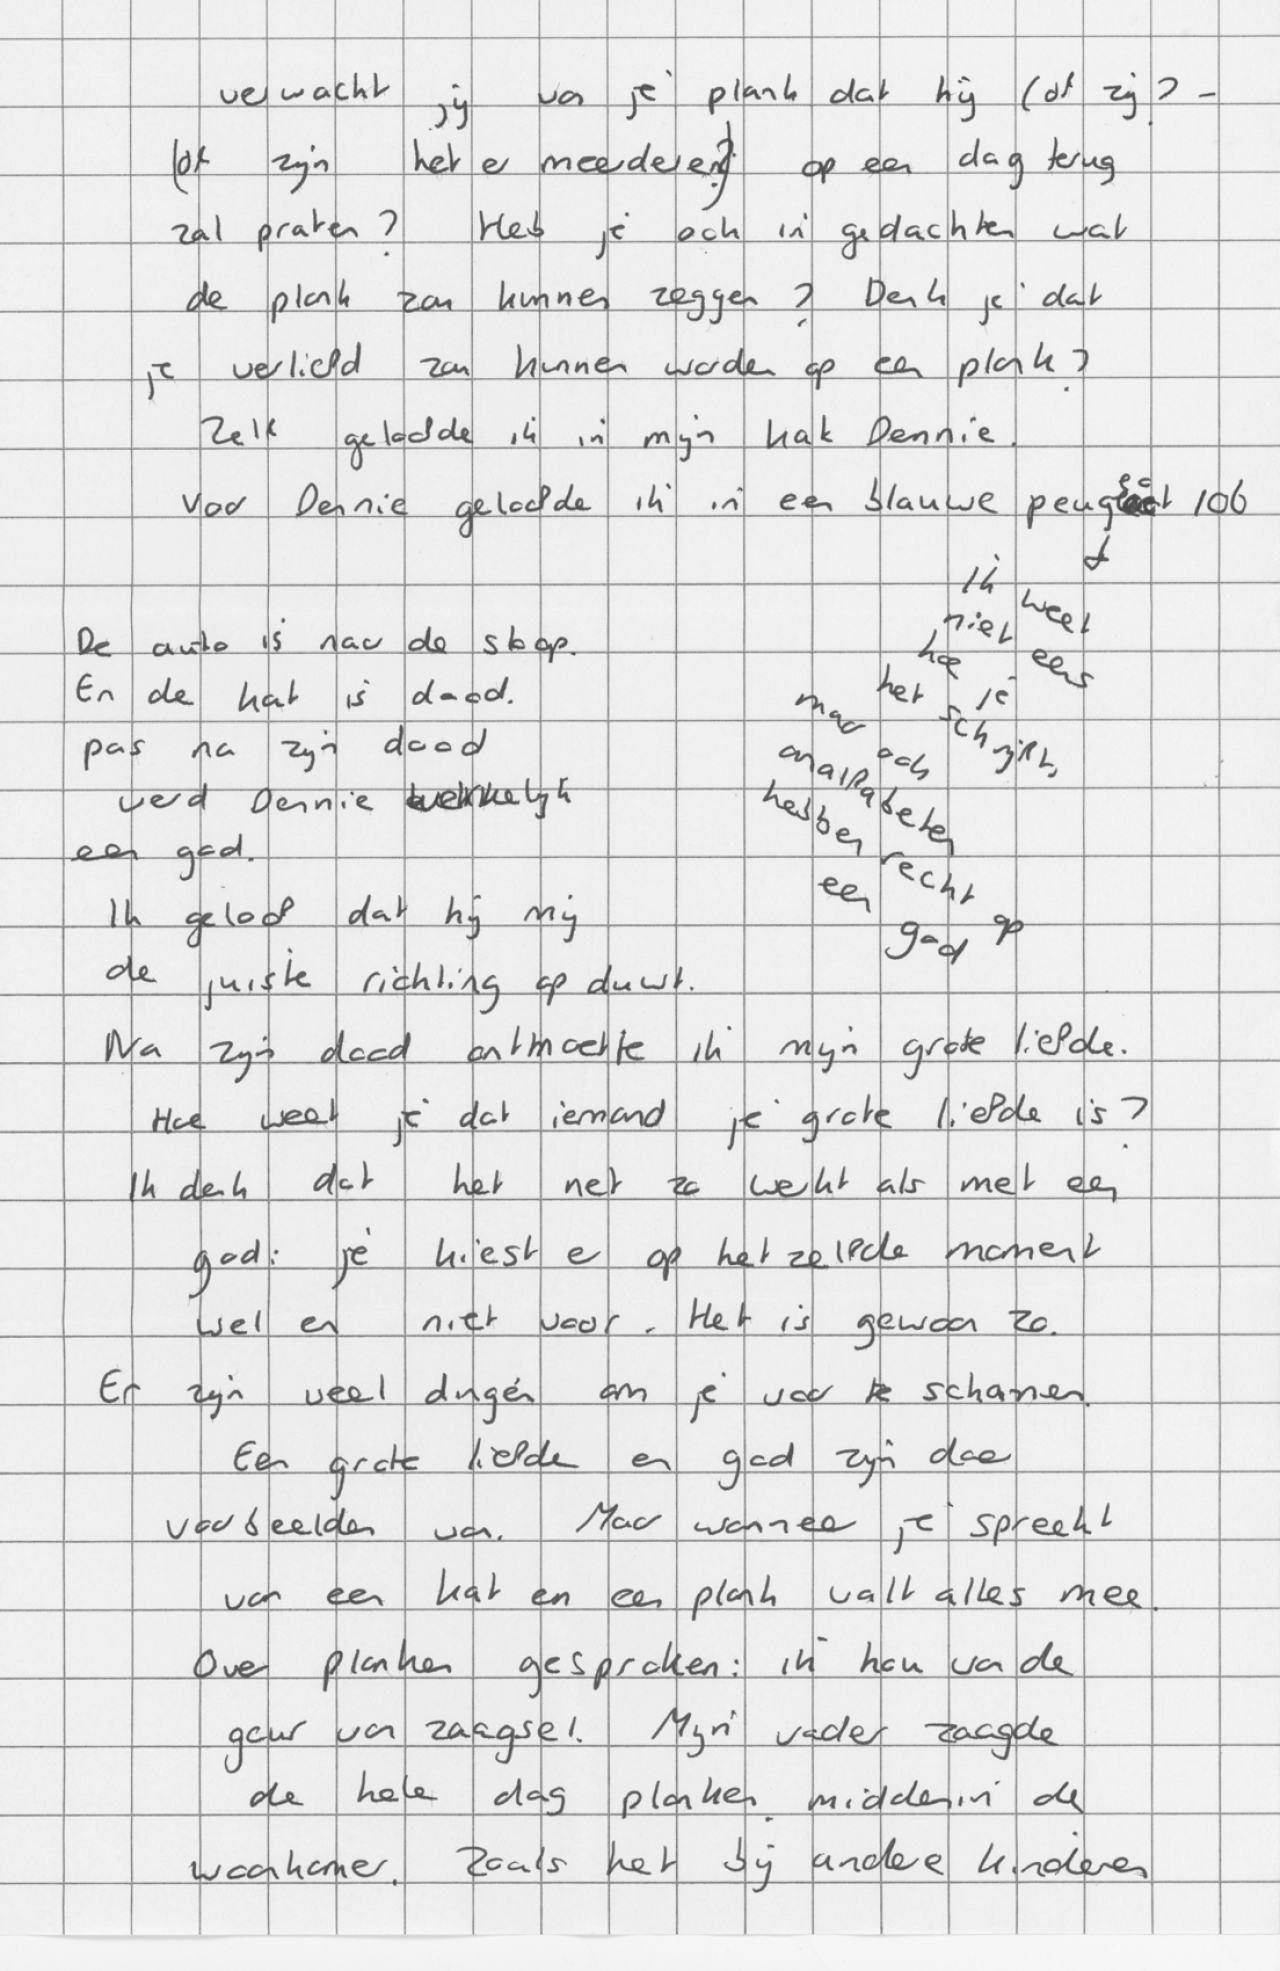 verwacht jij van je plank dat hij (of zij? -
(of zijn het er meerderen?) op een dag terug
zal praten? Heb je ook in gedachten wat
de plank zou kunnen zeggen? Denk je dat
je verliefd zou kunnen worden op een plank?
Zelf geloofde ik in mijn kat Dennie.
Voor Dennie geloofde ik in een blauwe peugeot 106
De auto is naar de sloop.
En de kat is dood.
pas na zijn dood
werd Dennie werkelijk
een god.
Ik geloof dat hij mij
de juiste richting op duwt.
Ik weet
niet eens
hoe je
het schrijft,
maar ook
analfabeten
hebben recht op
een god
Na zijn dood ontmoette ik mijn grote liefde.
Hoe weet je dat iemand je grote liefde is?
Ik denk dat het net zo werkt als met een
god: je kiest er op hetzelfde moment
wel en niet voor. Het is gewoon zo.
Er zijn veel dingen om je voor te schamen.
Een grote liefde en god zijn daar
voorbeelden van. Maar wanneer je spreekt
van een kat en een plank valt alles mee.
Over planken gesproken: ik hou van de
geur van zaagsel. Mijn vader zaagde
de hele dag planken middenin de
woonkamer. Zoals het bij andere kinderen